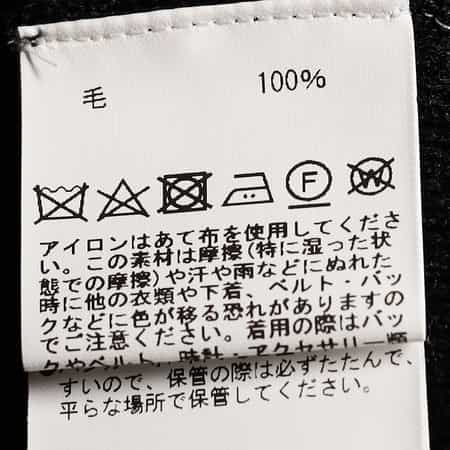 毛 100%
F W
アイロンはあて布を使用してくださ
い。この素材は摩擦(特に湿った状
態での摩擦)や汗や雨などにぬれた
時に他の衣類や下着、ベルト・バッ
クなどに色が移る恐れがありますの
でご注意ください。着用の際はバッ
クやベルト、時計・アクセサリー類
すいので、保管の際は必ずたたんで、
平らな場所で保管してください。